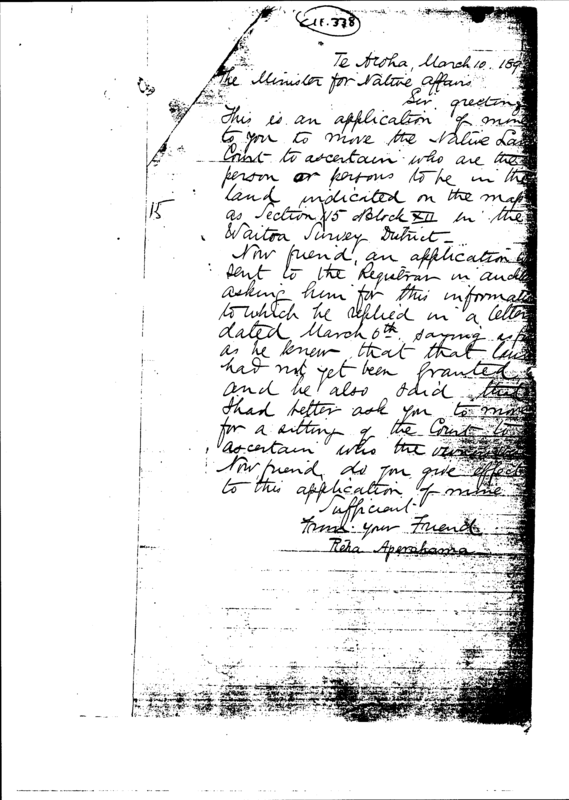 Te Aroha, March 10. 189
The Minister for Native Affairs
Sir, greeting
This is an application of mine
to you to move the Native Lan
Court to ascertain who are the
person or persons to be in the
land indicated on the map
15
as Section 15 Block XII in the
Waitoa Survey District –
Now friend, an application
sent to the Registrar in Auck
asking him for this informati
to which he replied in a letter
dated March 6th saying
as he knew that that land
had not yet been granted
and he also said that
I had better ask you to move
for a sitting of the Court to
ascertain who the owners
Now friend, do you give effect
to this application of mine
Sufficient.
From your Friend
Reha Aperahama